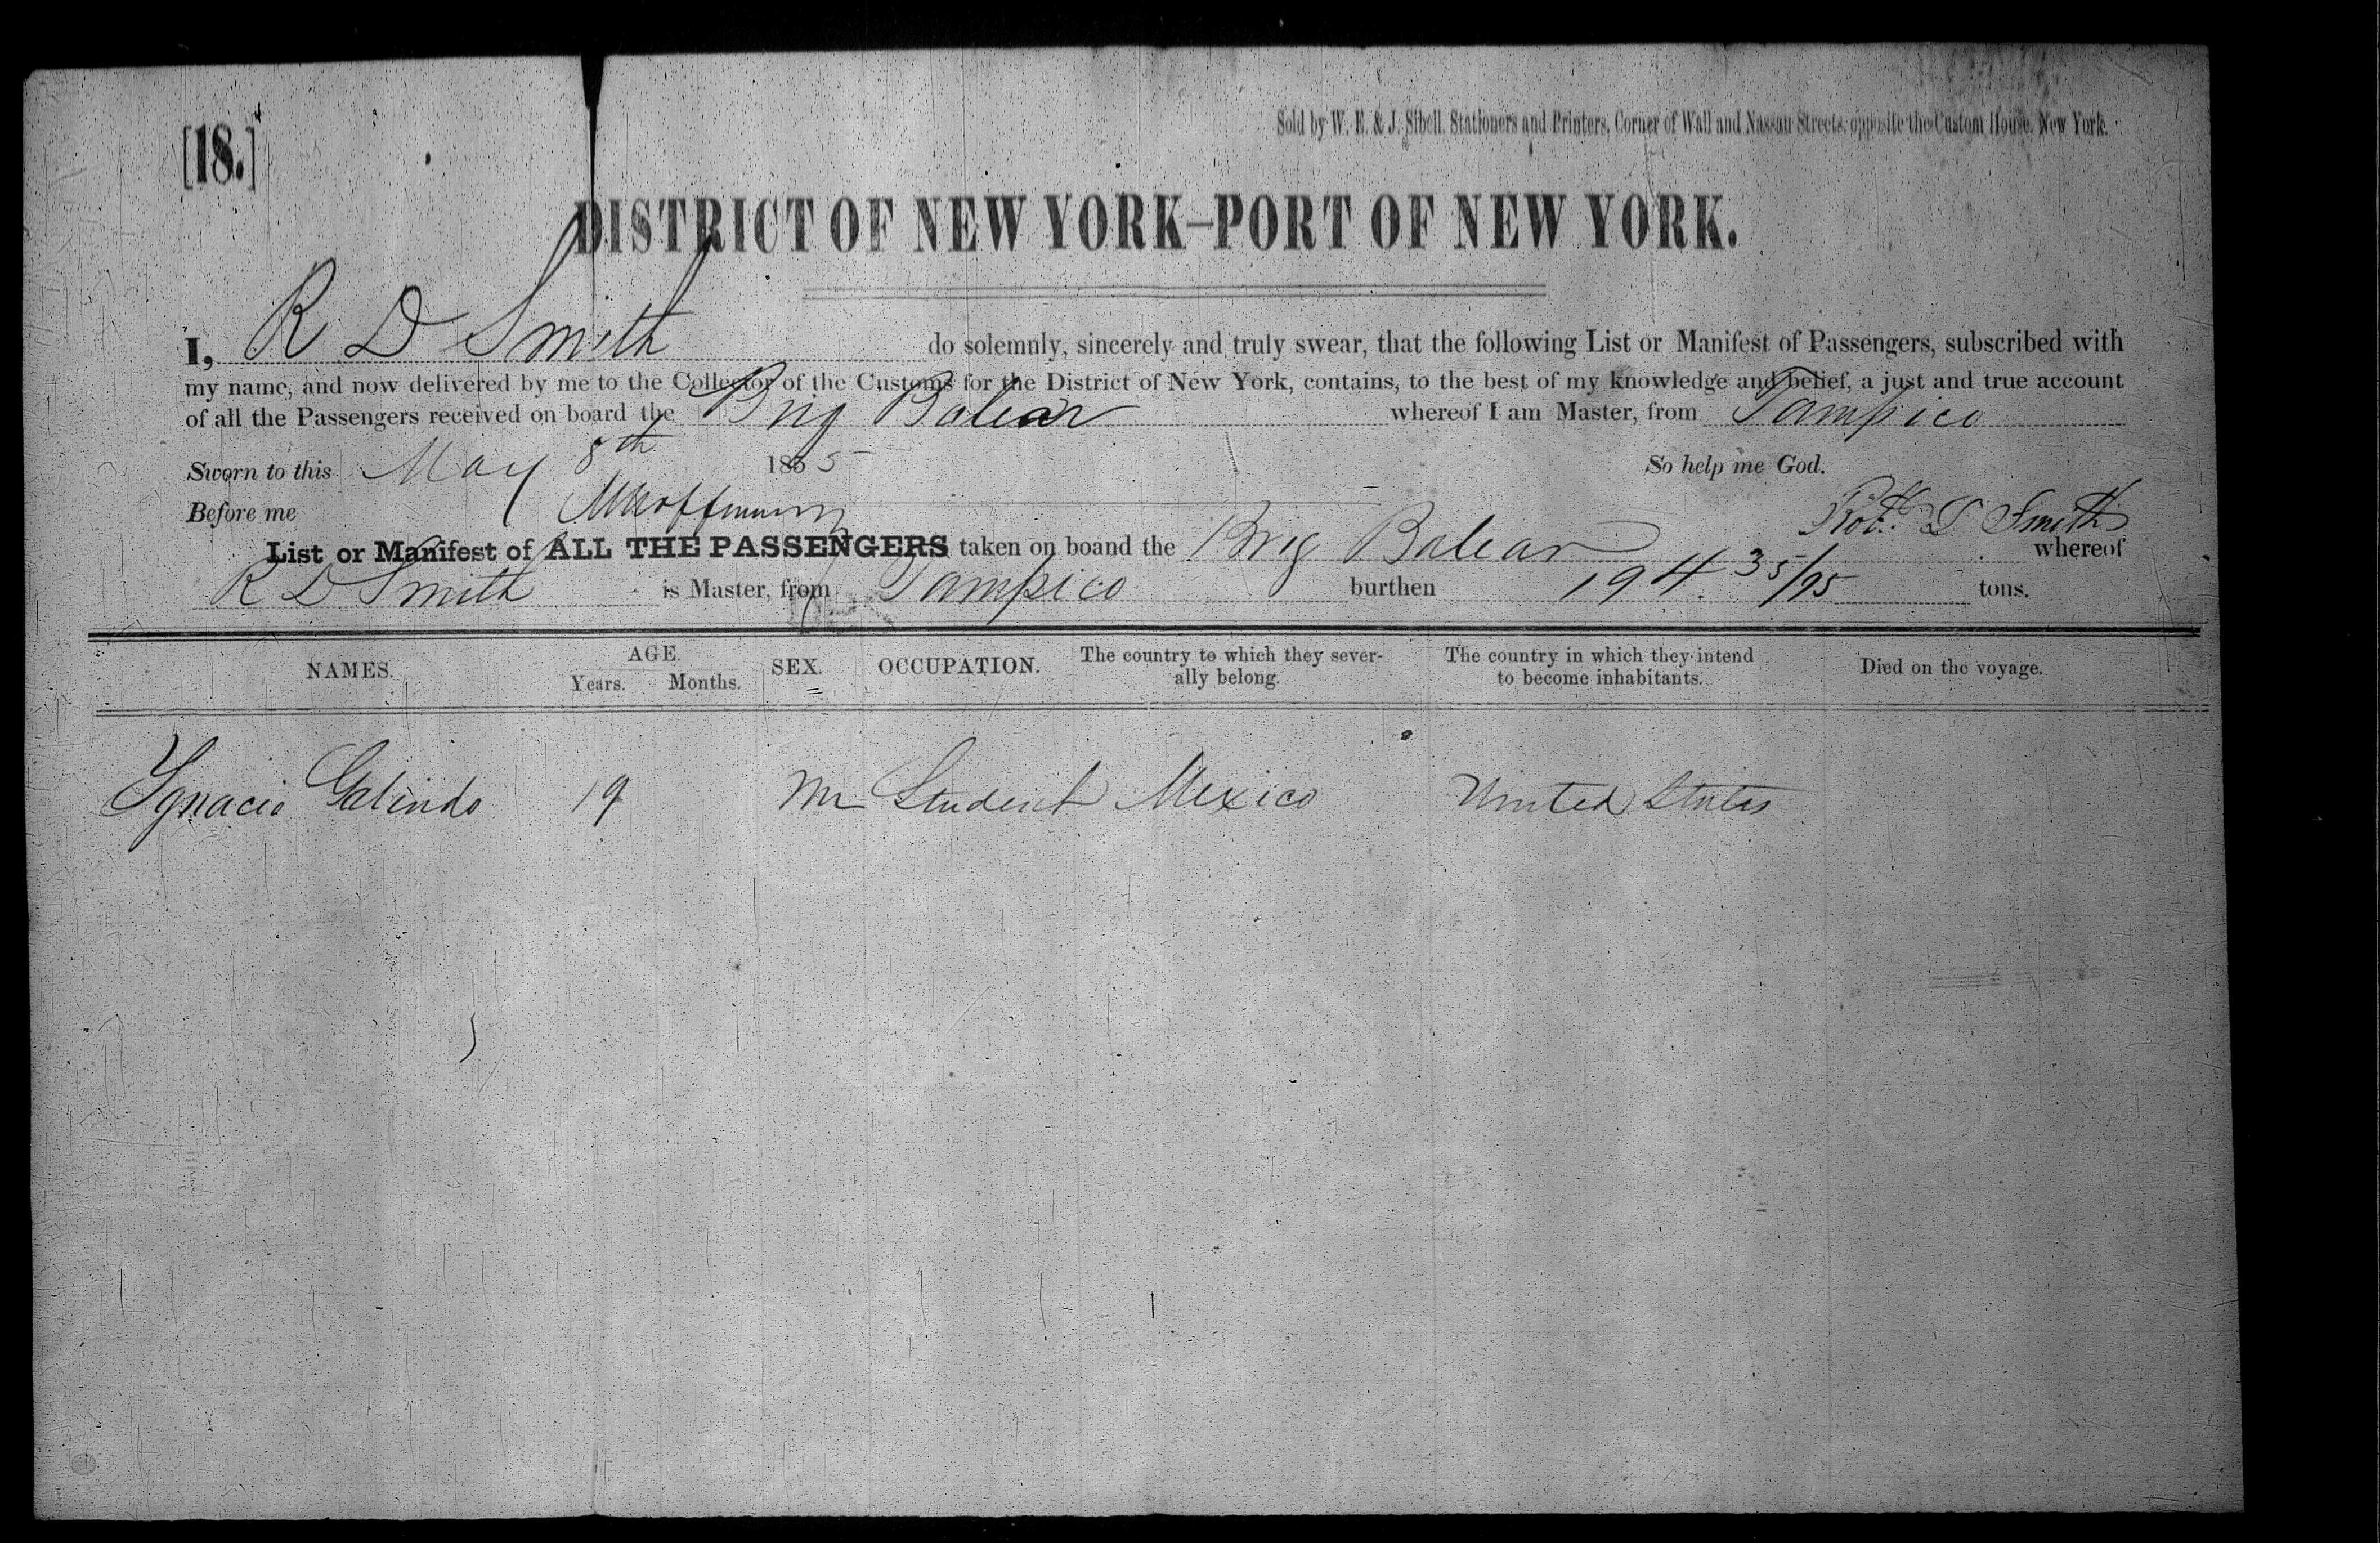 [18.]
Sold by W. E. & J. Sibell, Stationers and Printers, Corner of Wall and Nassau Streets, opposite the Custom House, New York.
DISTRICT OF NEW YORK–PORT OF NEW YORK.
I, R D Smith do solemnly, sincerely and truly swear, that the following List or Manifest of Passengers, subscribed with
my name, and now delivered by me to the Collector of the Customs for the District of New York, contains, to the best of my knowledge and belief, a just and true account
of all the Passengers received on board the Brig Balear whereof I am Master, from Tampico
Sworn to this May 8th 1855 So help me God.
Before me Robt. D Smith
List or Manifest of ALL THE PASSENGERS taken on boand the Brig Balear whereof
R D Smith is Master, from Tampico burthen 194 35/95 tons.
NAMES. AGE. Years. Months. SEX. OCCUPATION. The country to which they sever-ally belong. The country in which they intend to become inhabitants. Died on the voyage.
Ygnacio Galindo 19 M Student Mexico United States